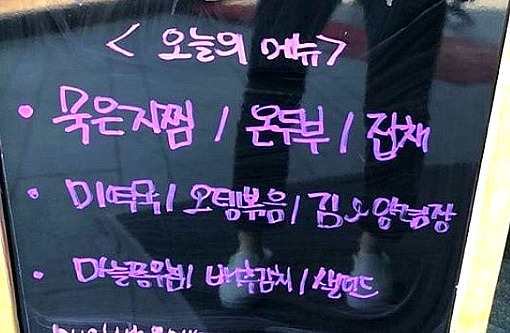 <오늘의 메뉴>
• 묵은지찜 / 온두부 / 잡채
• 미역국 / 오뎅볶음 / 김&양념장
• 배추김치 / 샐러드